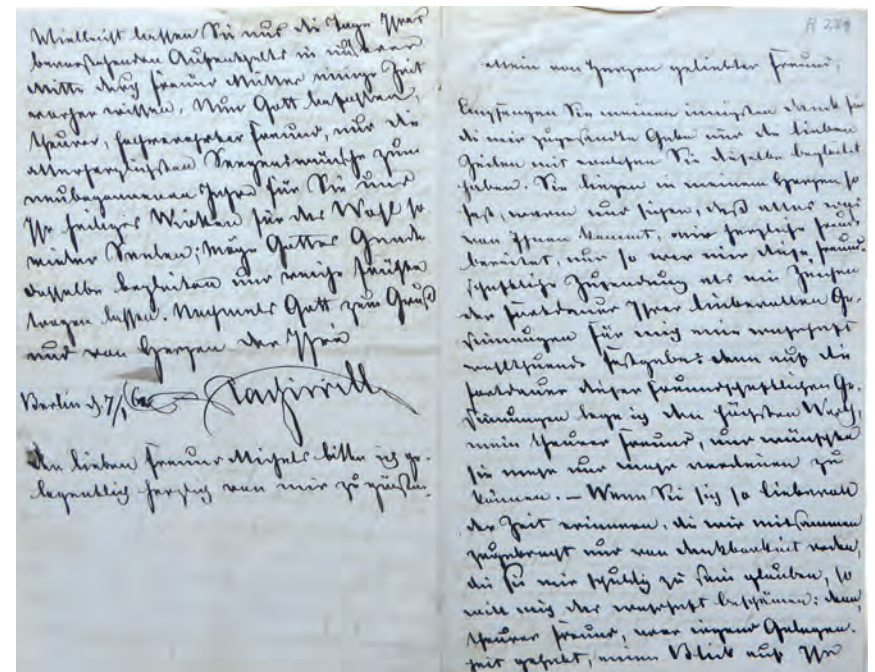 Vielleicht lassen Sie uns die Tage Ihres
bevorstehenden Aufenthalts in unserer
Mitte durch Freund Müller einige Zeit
vorher wissen. Nun Gott befohlen,
theurer, hochverehrter Freund, und die
allerherzlichsten Seegenswünsche zum
neubegonnenen Jahre für Sie und
Ihr heiliges Wirken für das Wohl so
vieler Seelen; möge Gottes Gnade
dasselbe begleiten und reiche Früchte
tragen lassen. Nochmals Gott zum Gruß
und von Herzen der Ihre
Berlin d 7/1 Radziwill
Den lieben Freund Michels bitte ich ge-
legentlich herzlich von mir zu grüßen.
Mein von Herzen geliebter Freund,
Empfangen Sie meinen innigsten Dank für
die mir zugesandte Gabe und die lieben
Zeilen mit welchen Sie dieselbe begleitet
haben. Sie liegen in meinem Herzen so
fest, warm und sicher, daß alles was
von Ihnen kommt, mir herzliche Freude
bereitet, und so war mir diese freund-
schaftliche Zusendung als ein Zeichen
der Fortdauer Ihrer liebevollen Ge-
sinnungen für mich eine wahrhaft
wohlthuende Festgabe; denn auf die
Fortdauer dieser freundschaftlichen Ge-
sinnungen lege ich den höchsten Werth,
mein theurer Freund, und wünschte
sie mehr und mehr verdienen zu
können. — Wenn Sie sich so liebevoll
der Zeit erinnern, die wir mitsammen
zugebracht und von Dankbarkeit reden,
die Sie mir schuldig zu sein glauben, so
will mich das wahrhaft beschämen; denn,
theurer Freund, wer irgend Gelegen-
heit gehabt, einen Blick auf Ihr